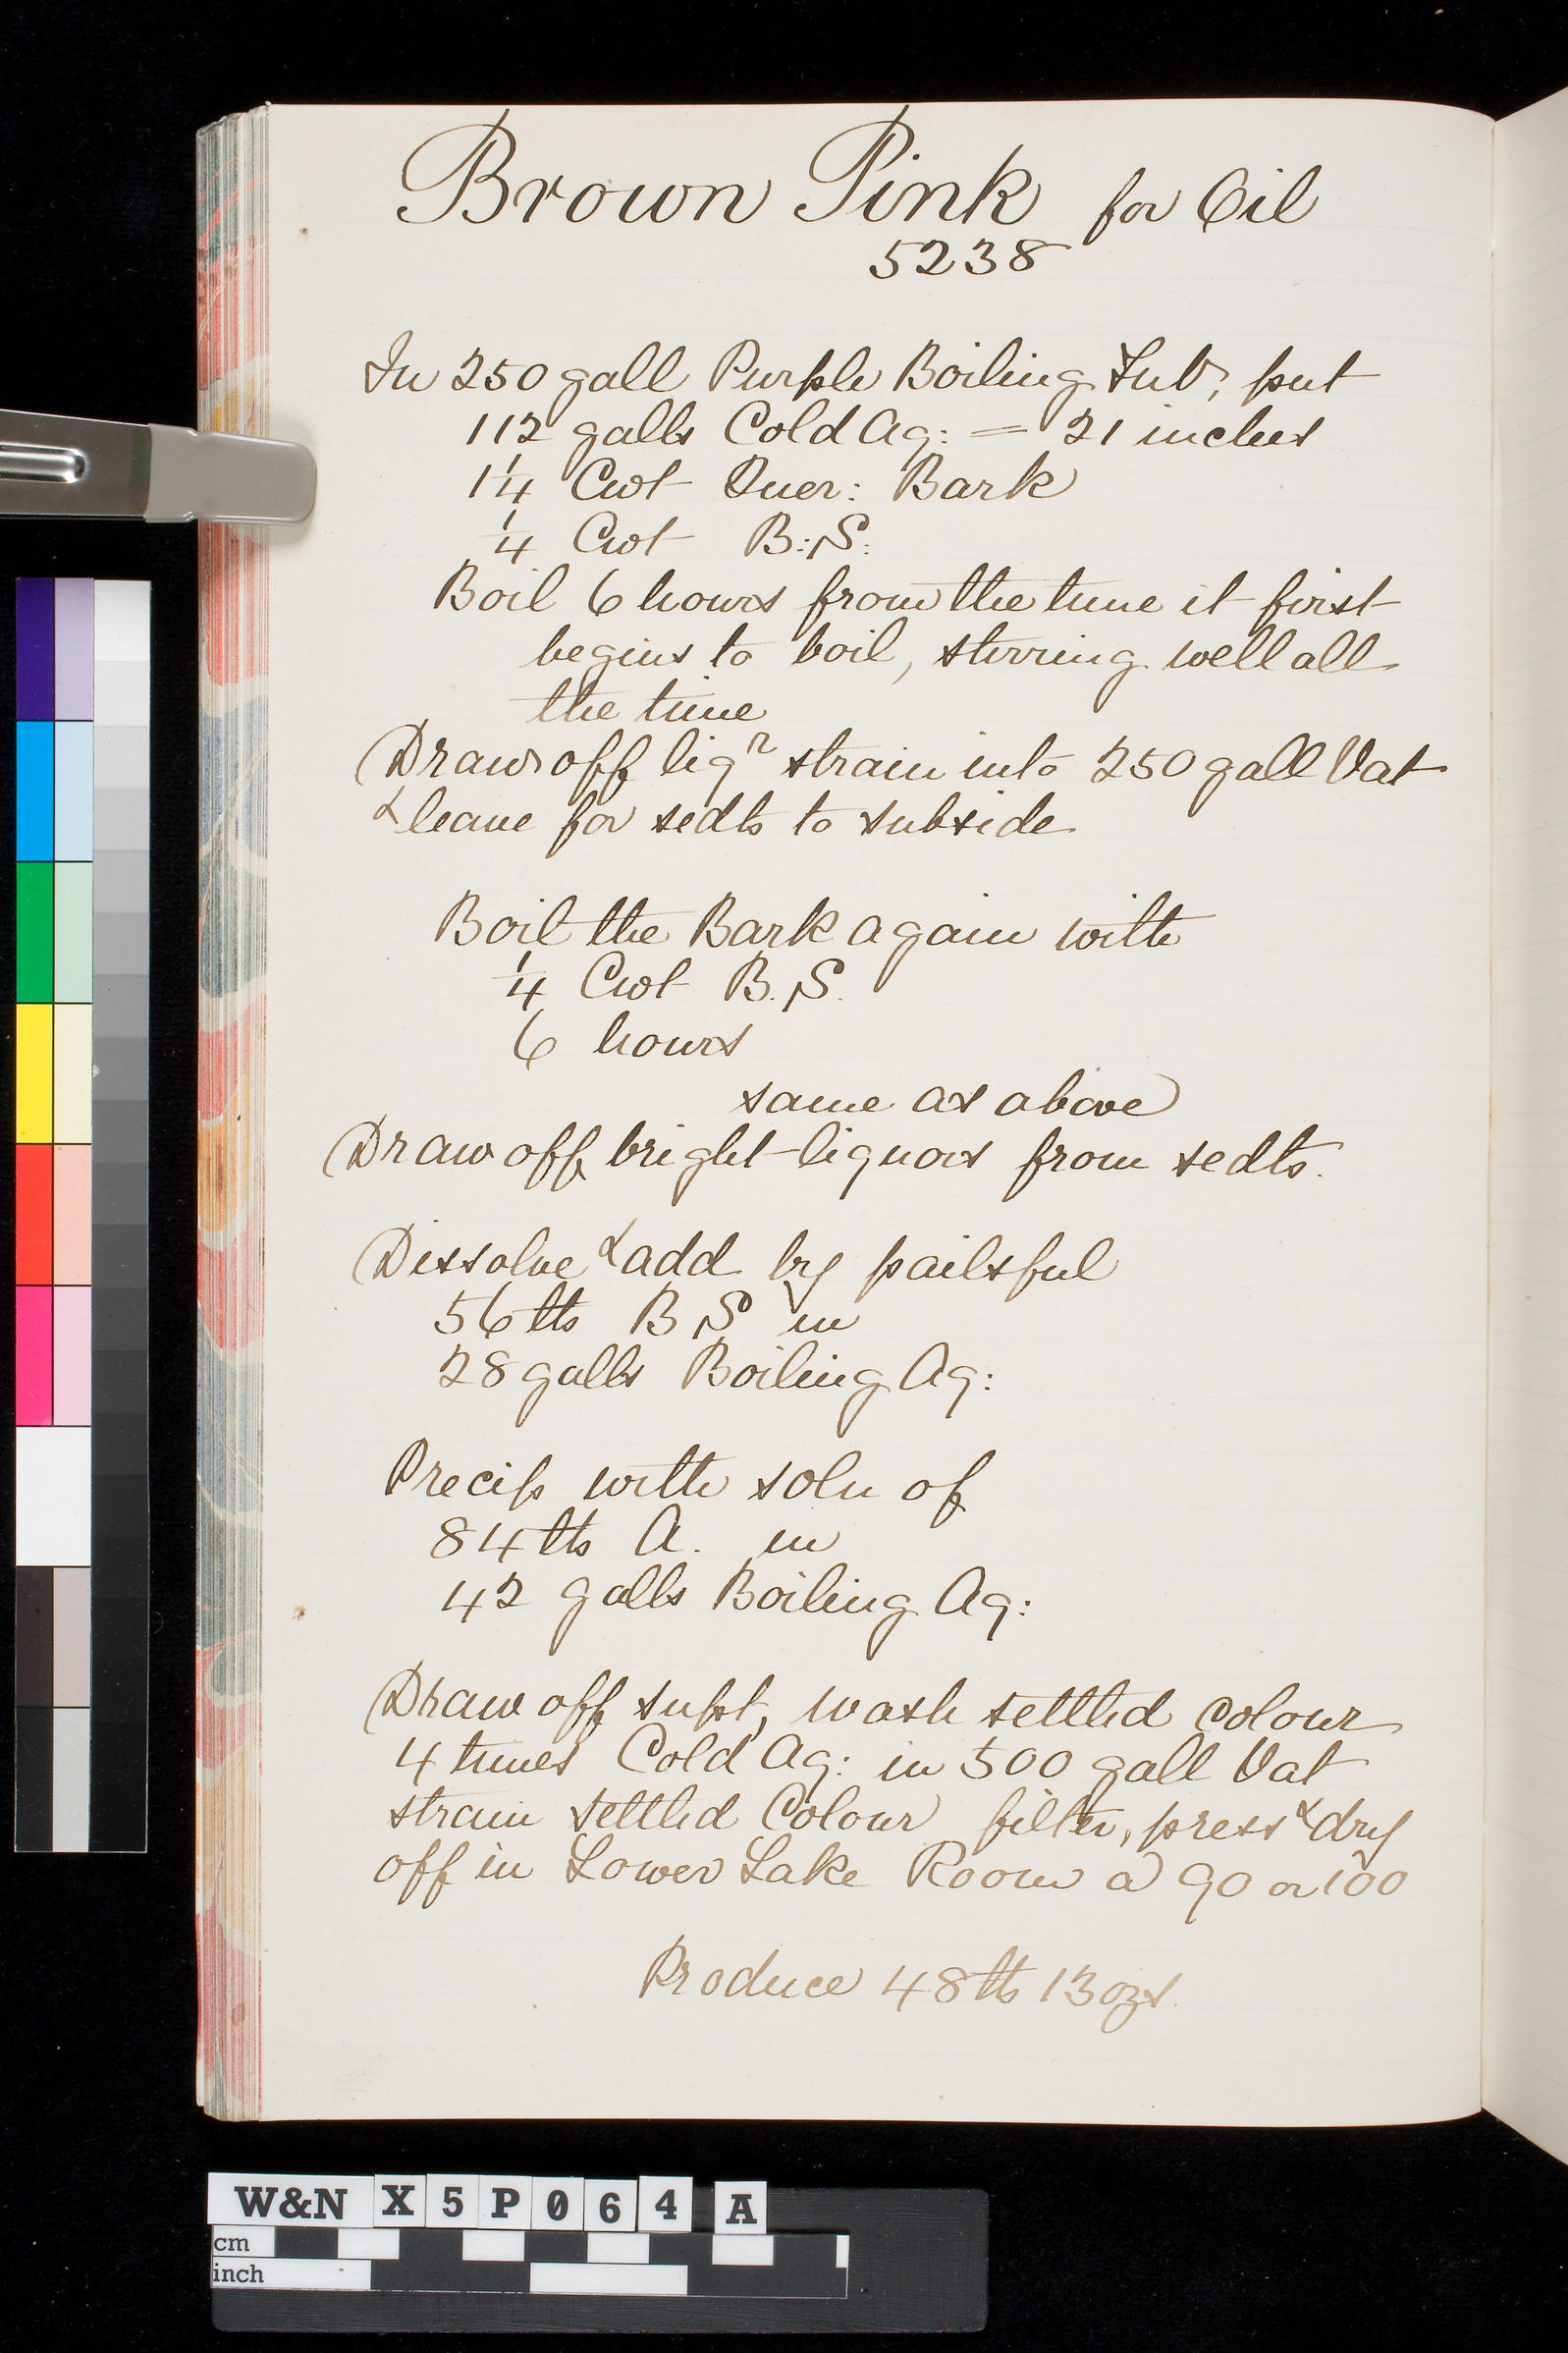 Brown Pink for Oil
5238
In 250 gall Purple Boiling Tub, put
112 galls Cold Aq: = 21 inches
1 1/4 Cwt Quer: Bark
1/4 Cwt B:S:
Boil 6 hours from the time it first
begins to boil, stirring well all
the time
Draw off liqr strain into 250 gall Vat
& leave for sedts to subside
Boil the Bark again with
1/4 Cwt B.S.
6 hours
same as above
Draw off bright liquors from sedts.
Dissolve & add by pailsful
56 lbs B S in
28 galls Boiling Aq:
Precip with soln of
84 lbs A. in
42 galls Boiling Aq:
Draw off supt, wash settled colour
4 times Cold Aq: in 500 gall Vat
strain settled Colour filter, press & dry
off in Lower Lake Room a 90 or 100
Produce 48 lbs 13 ozs.
W&N X 5 P 0 6 4 A
cm
inch